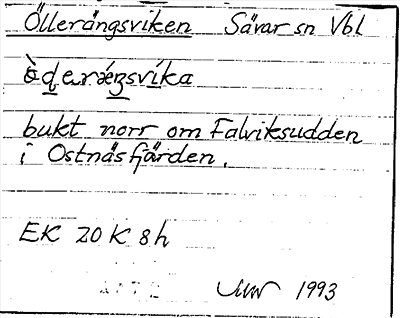 Öllerängsviken Sävar sn Vbl
bukt norr om Falviksudden
i Ostnäsfjärden.
EK 20 K 8h
1993